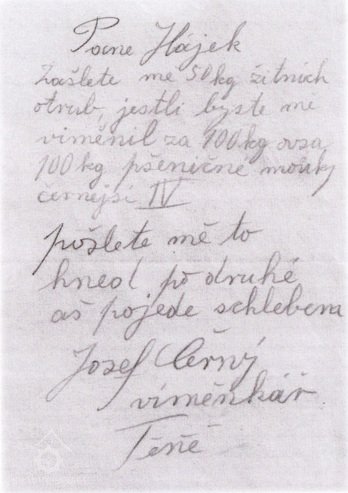 Pane Hájek
Zašlete mě 50kg žitních
otrub, jestli byste me
viměnil za 100kg ovsa,
100 kg pšeničné mouky
černejsi IV
pošlete mě to
hned po druhé
aš pojede schlebem
Josef Černý
viměnkář
Těně